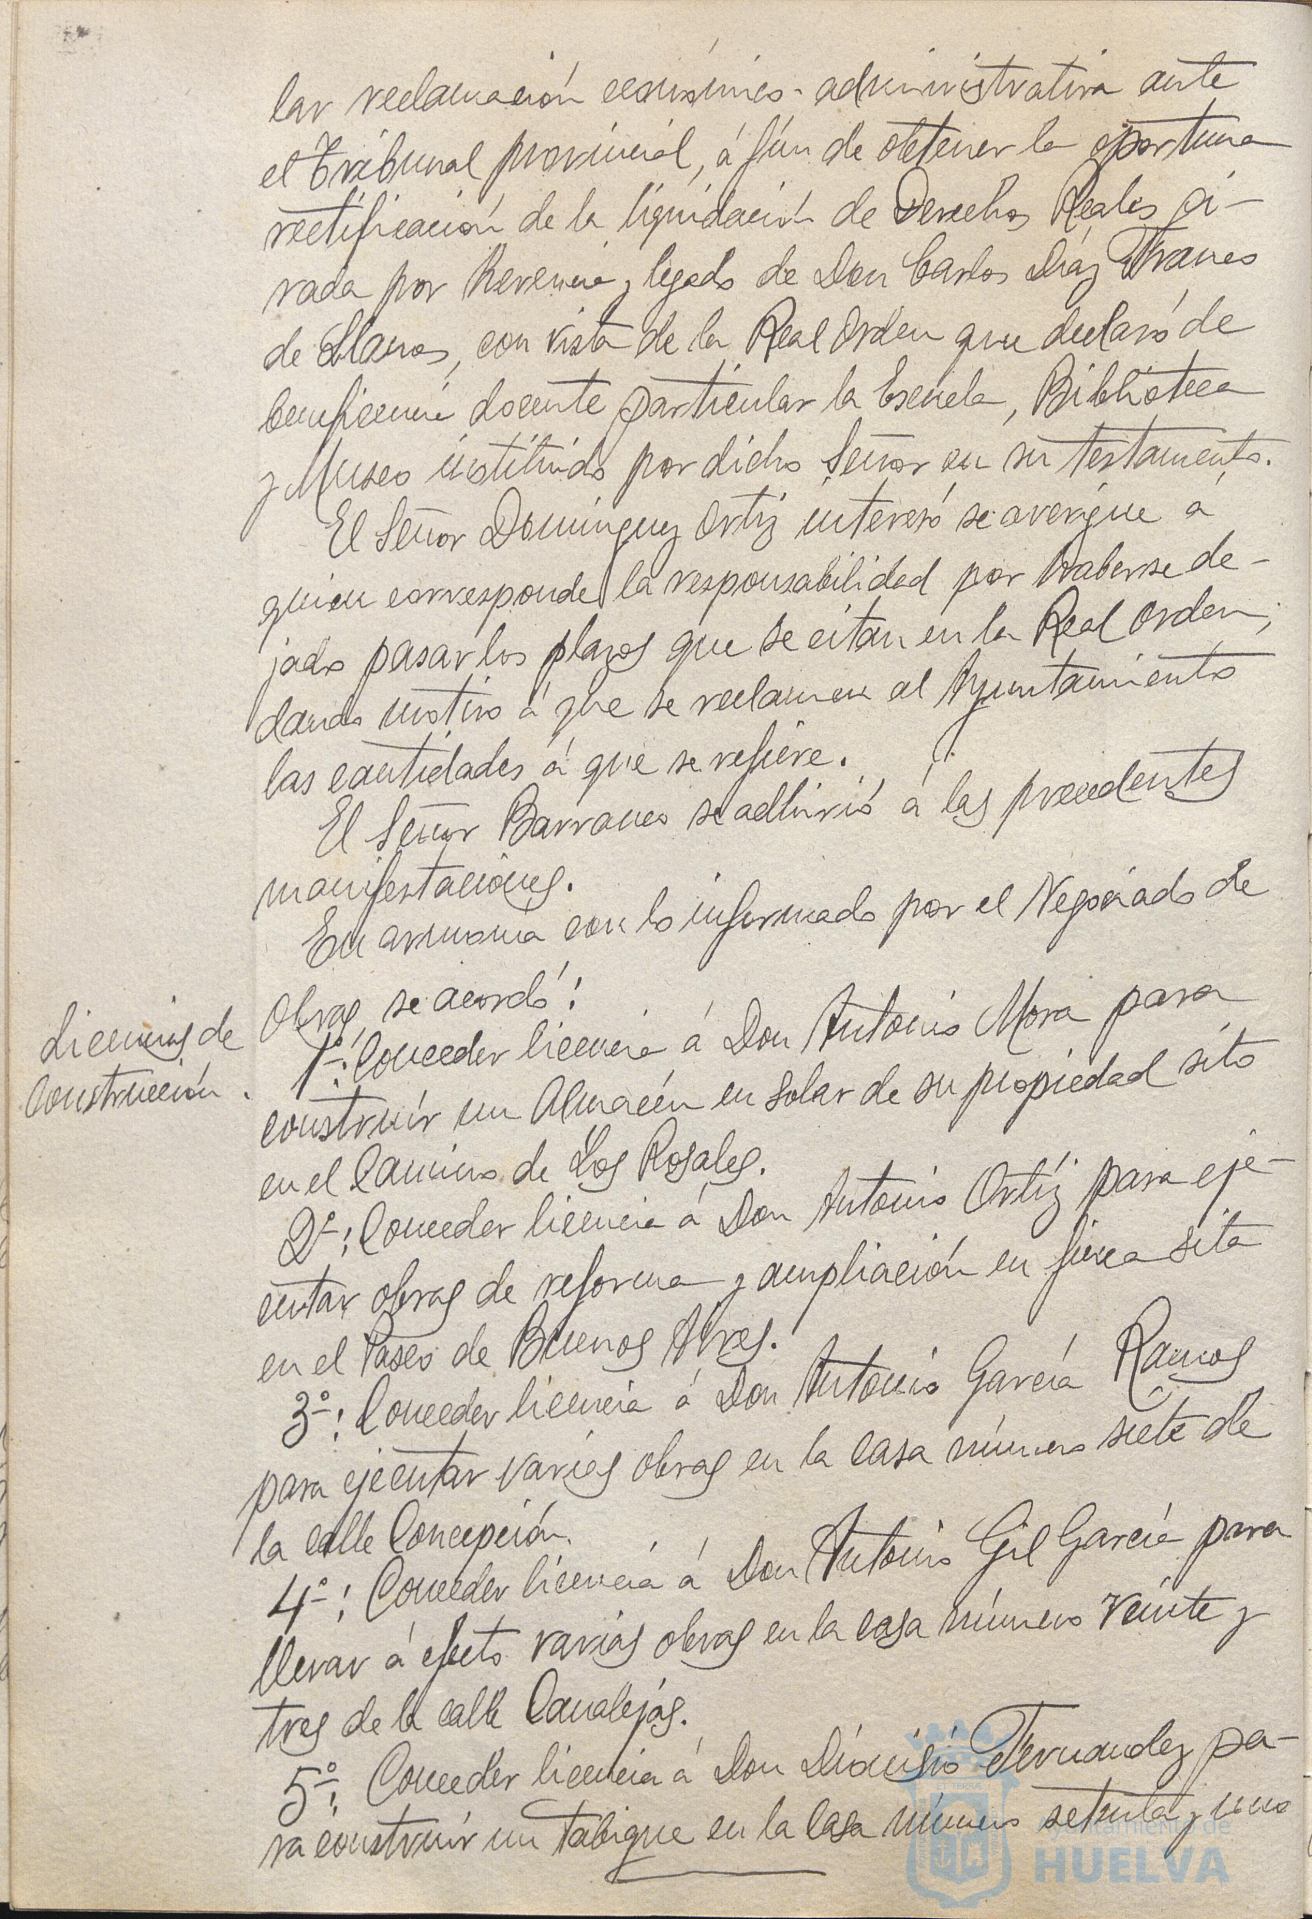 lar reclamación económico-administrativa ante
el Tribunal provincial, á fín de obtener la oportuna
rectificación de la liquidación de Derechos Reales gi-
rada por herencia y legado de Don Carlos Díaz Franco
de Llanos, con vista de la Real Orden que declaró de
beneficencia docente particular la Escuela, Biblioteca
y Museo instituido por dicho Señor en su testamento.
El Señor Dominguez Ortiz interesó se averigue á
quien corresponde la responsabilidad por haberse de-
jado pasar los plazos que se citan en la Real Orden,
dando motivo á que se reclamen al Ayuntamiento
las cantidades á que se refiere.
El Señor Barranco se adhirió á las precedentes
manifestaciones.
En armonia con lo informado por el Negociado de
Obras, se acordó:
Licencias de
construcción.
1º: Conceder licencia á Don Antonio Mora para
construír un Almacén en solar de su propiedad sito
en el Camino de Los Rosales.
2º: Conceder licencia á Don Antonio Ortíz para eje-
cutar obras de reforma y ampliación en finca sita
en el Paseo de Buenos Aires.
3º: Conceder licencia á Don Antonio García Ramos
para ejecutar varias obras en la casa número siete de
la calle Concepción.
4º: Conceder licencia á Don Antonio Gil García para
llevar á efecto varias obras en la casa número veinte y
tres de la calle Canalejas.
5º: Conceder licencia á Don Dionisio Fernandez pa-
ra construír un tabique en la casa número setenta y uno
Ayuntamiento de
HUELVA